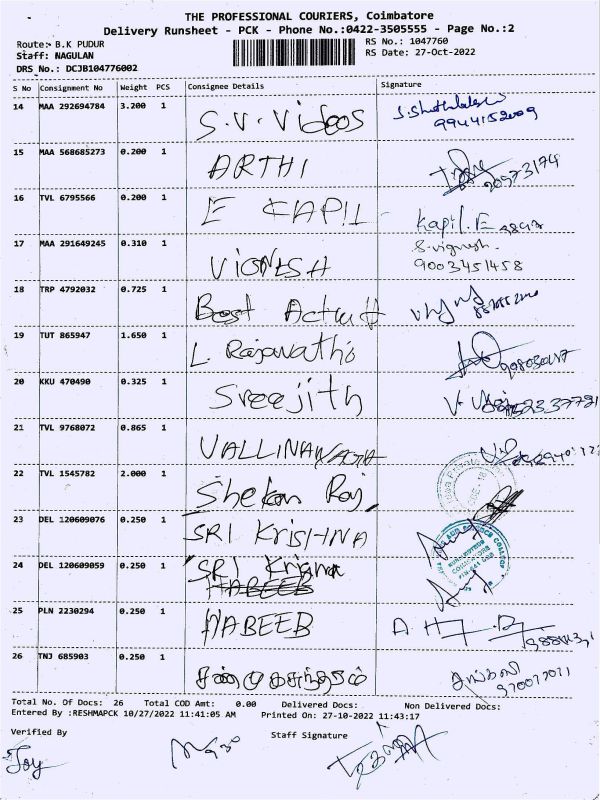 THE PROFESSIONAL COURIERS, Coimbatore
Delivery Runsheet - PCK - Phone No.:0422-3505555 - Page No.:2
Route:- B.K PUDUR
RS No.: 1047760
Staff: NAGULAN
RS Date: 27-Oct-2022
DRS No.: DCJB104776002
S No Consignment No Weight PCS Consignee Details Signature
14 MAA 292694784 3.200 1 S.V. Videos
15 MAA 568685273 0.200 1 ARTHI
16 TVL 6795566 0.200 1 E KAPIL Kapil.E
17 MAA 291649245 0.310 1 VIGNESH S.vignesh.
9003451458
18 TRP 4792032 0.725 1 Best
19 TUT 865947 1.650 1 L.
20 KKU 470490 0.325 1 Sreejith
21 TVL 9768072 0.865 1
22 TVL 1545782 2.000 1 Shekar Raj
23 DEL 120609076 0.250 1 SRI KrisHNA
24 DEL 120609059 0.250 1 SRI Krishna
25 PLN 2230294 0.250 1 HABEEB
26 TNJ 685903 0.250 1 சண்முகசுந்தரம்
Total No. Of Docs: 26 Total COD Amt: 0.00 Delivered Docs: Non Delivered Docs:
Entered By :RESHMAPCK 10/27/2022 11:41:05 AM Printed On: 27-10-2022 11:43:17
Verified By Staff Signature
Joy